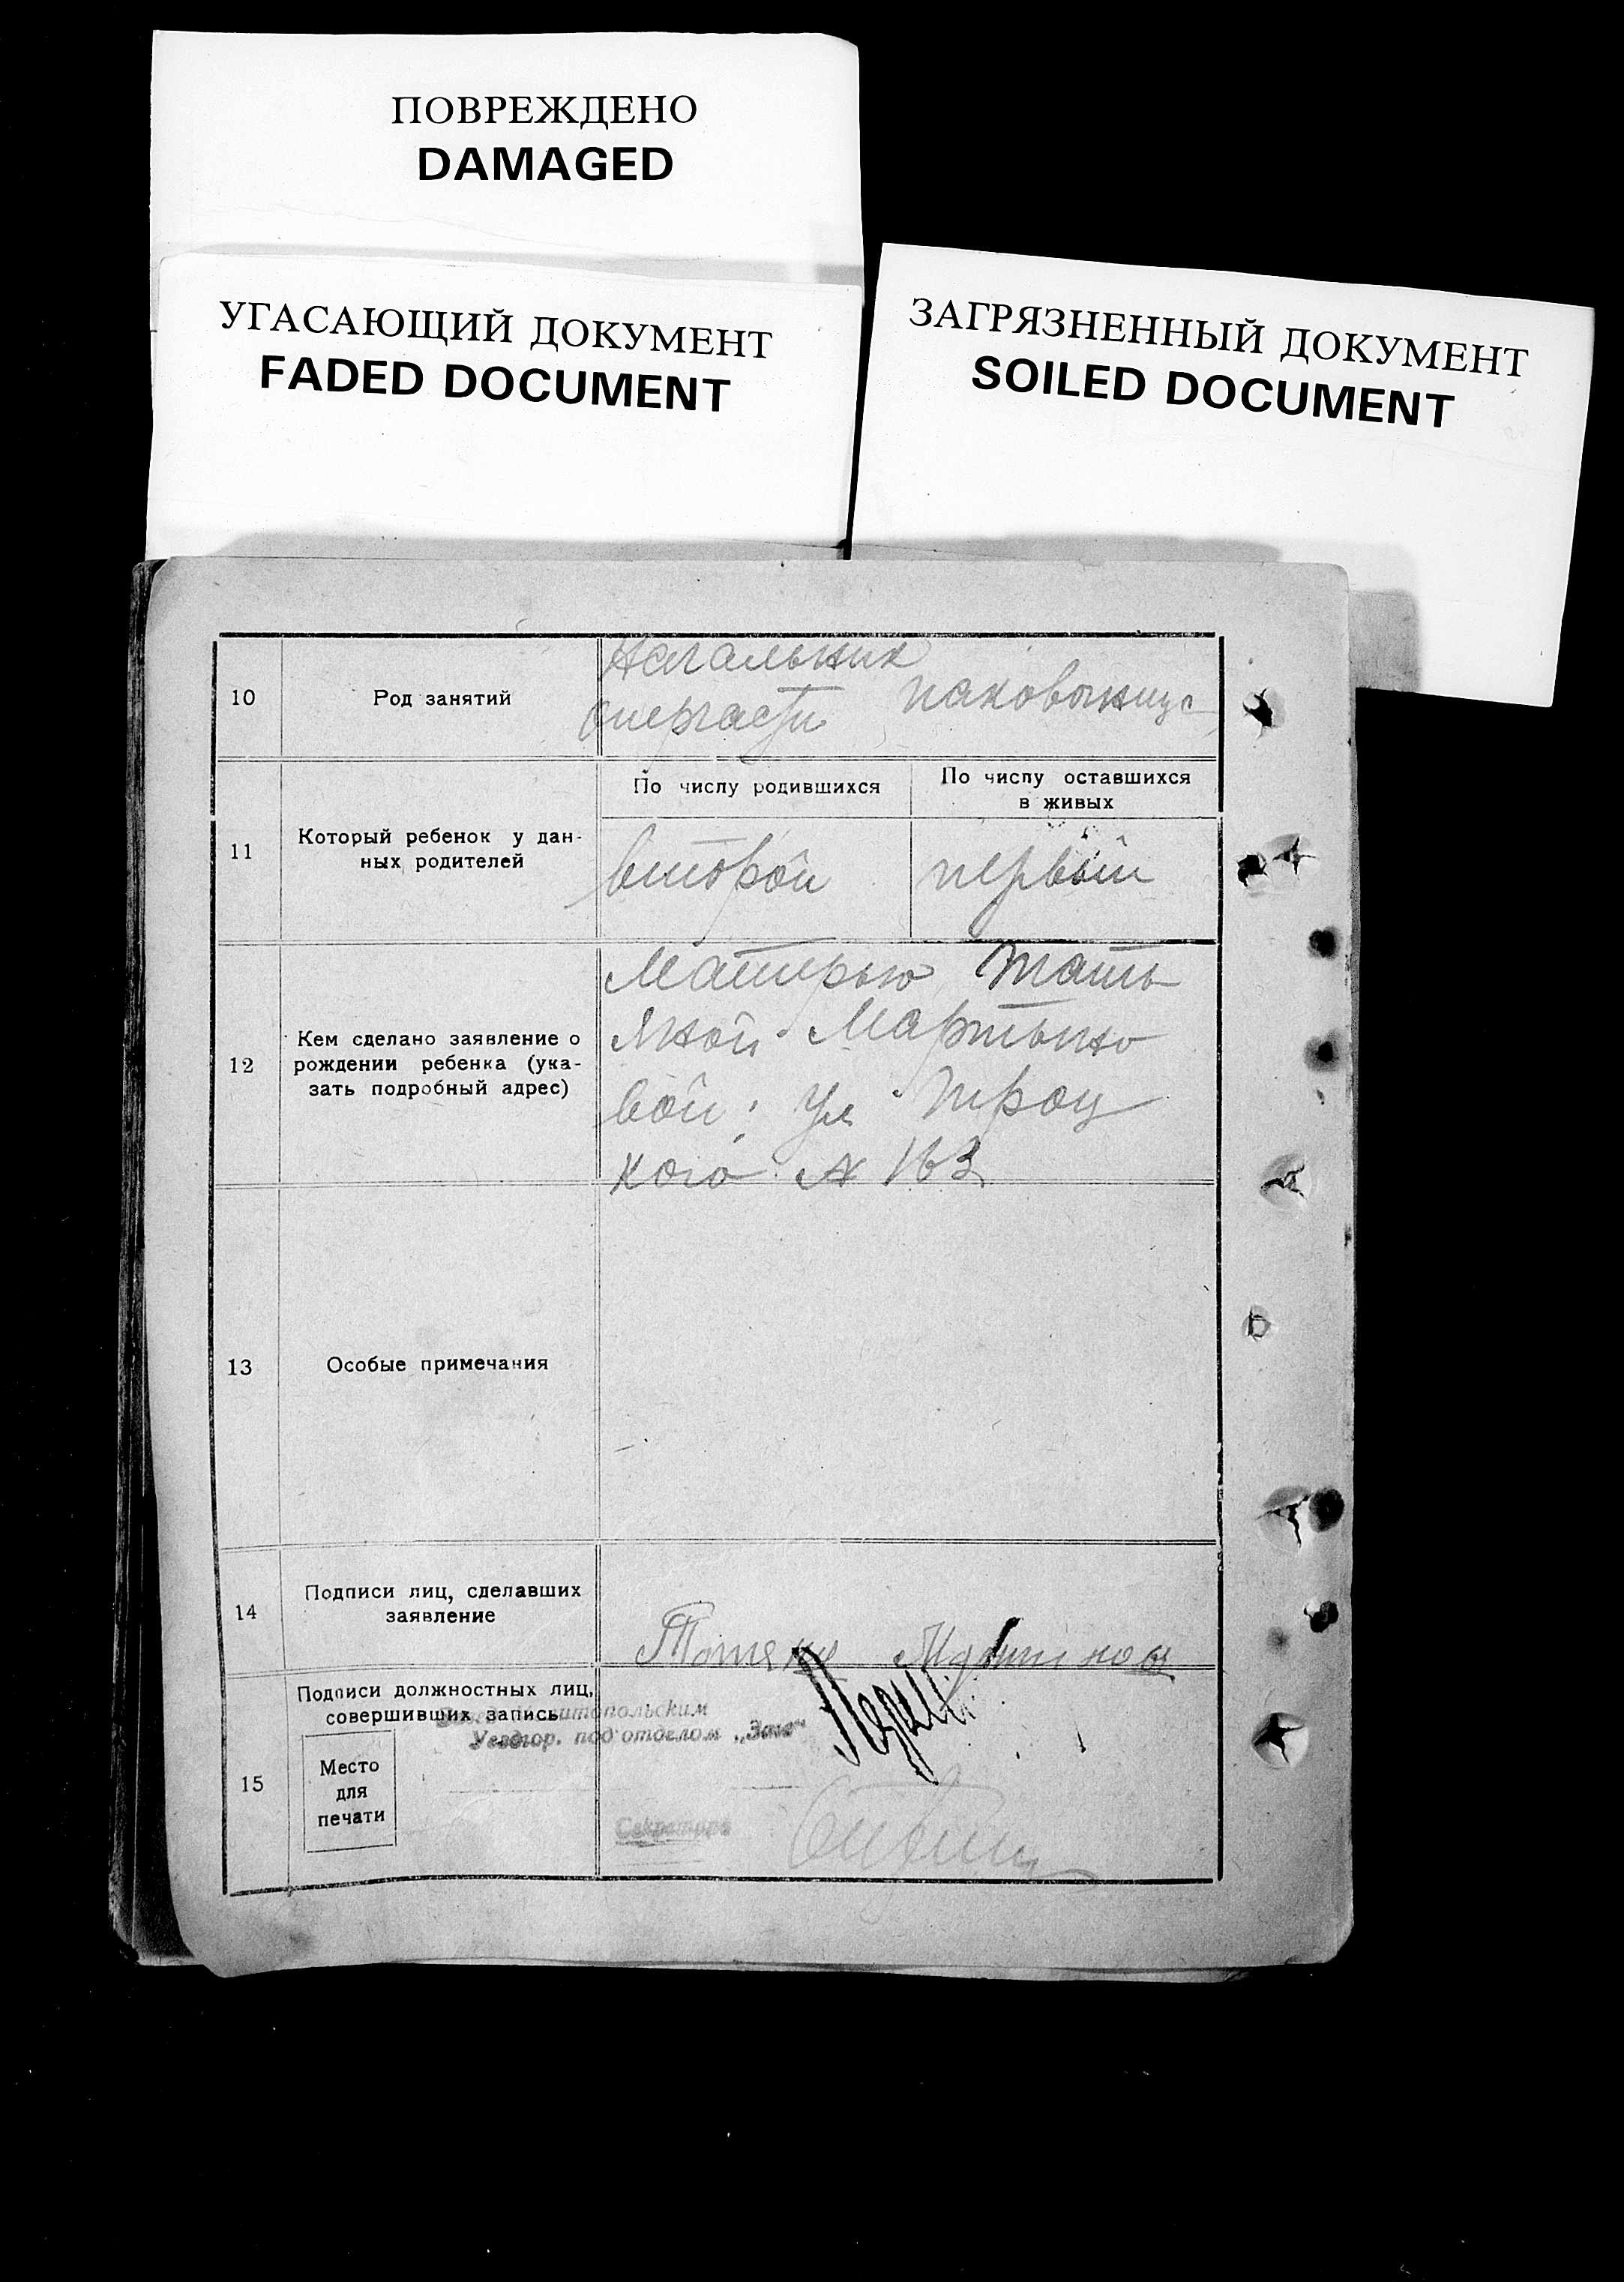 ПОВРЕЖДЕНО
DAMAGED
УГАСАЮЩИЙ ДОКУМЕНТ
FADED DOCUMENT
ЗАГРЯЗНЕННЫЙ ДОКУМЕНТ
SOILED DOCUMENT
10
Род занятий
Начальник
оперчасти
паковщица
11
Который ребенок у дан-
ных родителей
По числу родившихся
По числу оставшихся
в живых
второй
первый
12
Кем сделано заявление о
рождении ребенка (ука-
зать подробный адрес)
Матерью Тать
яной Мартыно
вой; Ул Троц
кого № 163
13
Особые примечания
14
Подписи лиц, сделавших
заявление
15
Подписи должностных лиц,
совершивших запись
Уездгор. под отделом „Загс“
Место
для
печати
Секретарь